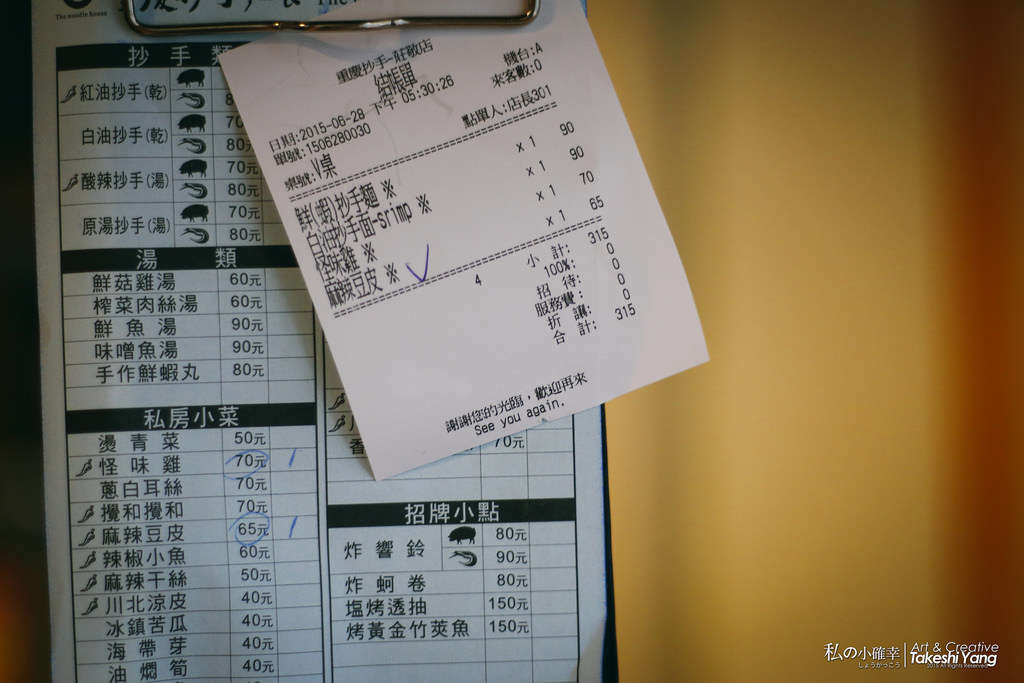 The noodle house
抄 手 類
紅油抄手(乾)
白油抄手(乾) 70
80元
酸辣抄手(湯) 70元
80元
原湯抄手(湯) 70元
80元
湯 類
鮮菇雞湯 60元
榨菜肉絲湯 60元
鮮 魚 湯 90元
味噌魚湯 90元
手作鮮蝦丸 80元
私房小菜
燙 青 菜 50元
怪 味 雞 70元 1
蔥白耳絲 70元
攪和攪和 70元
麻辣豆皮 65元 1
辣椒小魚 60元
麻辣干絲 50元
川北涼皮 40元
冰鎮苦瓜 40元
海 帶 芽 40元
油 燜 筍 40元
香
70元
招牌小點
炸 響 鈴 80元
90元
炸 蚵 卷 80元
塩烤透抽 150元
烤黃金竹莢魚 150元
重慶抄手-莊敬店
結帳單
機台:A
日期:2015-06-28 下午 05:30:26
來客數:0
單號:1506280030
點單人:店長301
桌號:V桌
鮮(蝦)抄手麵 ※ x 1 90
白油抄手面-srimp ※ x 1 90
怪味雞 ※ x 1 70
麻辣豆皮 ※ x 1 65
4
小 計: 315
100%: 0
招 待: 0
服務費: 0
折 讓: 0
合 計: 315
謝謝您的光臨，歡迎再來
See you again.
私の小確幸
しょうかっこう
Art & Creative
Takeshi Yang
2015 All Rights Reserved